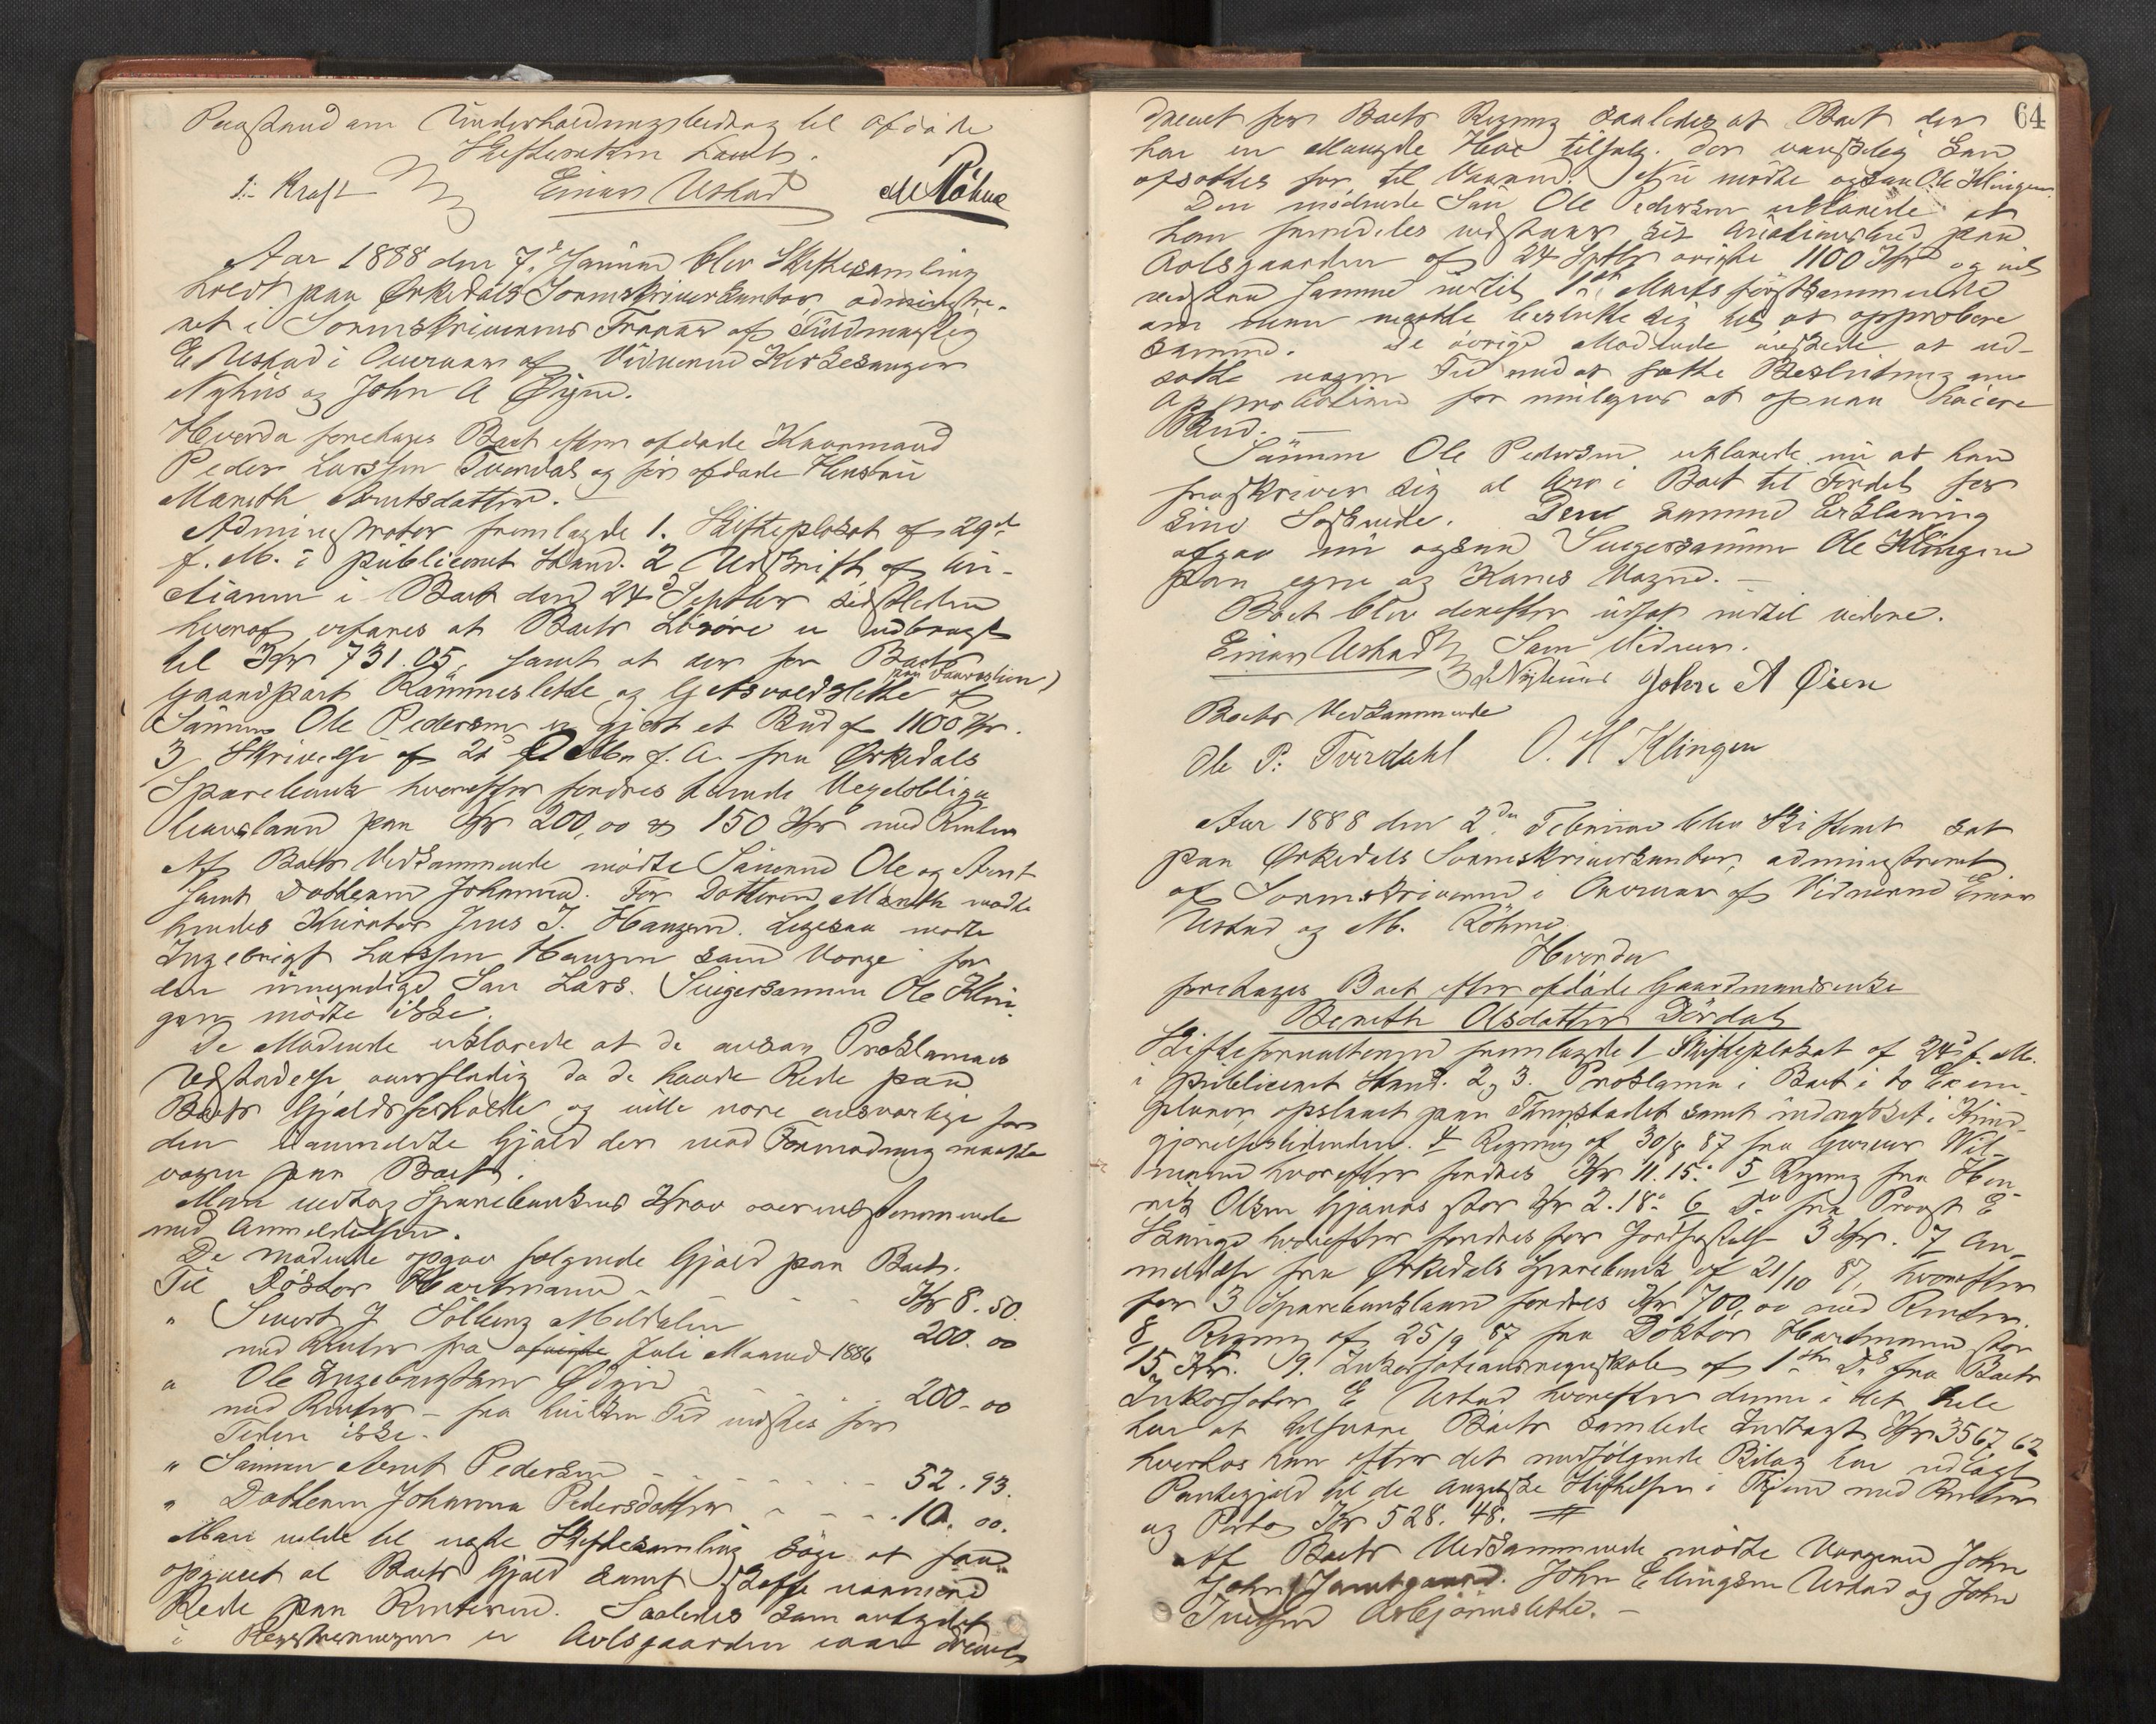 Paastand om Underholdningsbidrag til afdøde
Skifteretten hævet.
P. Kraft Einar Ustad M Röhme
Aar 1888 den 7de Januar blev Skiftesamling
holdt paa Ørkedals Sorenskriverkontor, administre-
ret i Sorenskriverens Fravær af Fuldmægtig
E Ustad i Overvær af Vidnerne Kirkesanger
Nyhus og John A Øyen.
Hvorda foretoges Boet efter afdøde Kaarmand
Peder Larssen Tverdal og før afdøde Hustru
Mareth Arntsdatter.
Administrator fremlagde 1. Skifteplakat af 29de
f. M. i publiceret Stand. 2 Udskrift af Au-
ktionen i Boet den 24de Septbr sidstleden
hvoraf erfares at Boets Løsøre er udbragt
til Kr 731.05, samt at der for Boets
Gaardpart Rømmeslette og Gjetsvoldslette af
paa Auktionen)
Sønnen Ole Pedersen er gjort et Bud af 1100 Kr.
3 Skrivelse af 21 Oktbr f. A. fra Ørkedals
Sparebank hvorefter fordres tvende Vexelobliga
tionslaan paa Kr 200,00 & 150 Kr med Renter
Af Boets Vedkommende mødte Sønnerne Ole og Arnt
samt Datteren Johanna. For Datteren Mareth mødte
hendes Kurator Jens J. Haugen. Ligesaa mødte
Ingebrigt Larssen Haugen som Verge for
den umyndige Søn Lars. Svigersønnen Ole Klin-
gen mødte ikke.
De Mødende erklærede at de ansaa Proklamas
Udstedelse overflødig da de havde Rede paa
Boets Gjældsforholde og ville være ansvarlige for
den uanmeldte Gjæld der mod Formodning maatte
være paa Boet.
Man vedtog Sparebankens Krav overensstemmende
med Anmeldelsen.
De mødende opgav følgende Gjæld paa Boet.
Til Doktor Hartmann - - - Kr 8.50.
" Sivert J Solberg Meldalen 200.00
med Renter fra afvigte Juli Maaned 1886
" Ole Ingebrigtsen Øyen 200-00
med Renter - fra hvilken Tid vidstes for
Tiden ikke.
" Sønnen Arnt Pedersen - - - - 52.93.
" Datteren Johanna Pedersdatter - - - 10.00.
Man vilde til næste Skiftesamling søge at faa
opgivet al Boets Gjæld samt skaffe nærmere
Rede paa Renterne. Saaledes som antydet
i Registreringen er Avlsgaarden iaar drevet
64
drevet for Boets Regning saaledes at Boet der
har en Mængde Hø tilsalg. der vanskelig kan
afsættes før til Vaaren. Nu mødte ogsaa Ole Klingen
Den mødende Søn Ole Pedersen erklærede at
han fremdeles vedstaar sit Auktionsbud paa
Avlsgaarden af 24 Septbr avigte 1100 Kr og vil
vedstaa samme indtil 1ste Marts førstkommende
om man maatte beslutte sig til at approbere
samme. De øvrige Mødende ønskede at ud-
sætte nogen Tid med at fatte Beslutning om
Approbation for muligens at opnaa høiere
Bud. —
Sønnen Ole Pedersen erklærede nu at han
fraskriver sig al Arv i Boet til Fordel for
sine Sødskende. Den samme Erklæring
afgav nu ogsaa Svigersønnen Ole Klingen
paa egne og Kones Vegne. —
Boet blev derefter udsat indtil videre.
Einar Ustad Som Vidner.
Nyhuus John A Øien
Boets Vedkommende
Ole P: Tverdahl O. H Klingen
Aar 1888 den 2den Februar blev Skifteret sat
paa Ørkedals Sorenskriverkontor, administreret
af Sorenskriveren i Overvær af Vidnerne Einar
Ustad og M. Röhme
Hvorda
foretoges Boet efter afdøde Gaardmandsenke
Bereth Olsdatter Dørdal
Skifteforvalteren fremlagde 1 Skifteplakat af 24de f. M.
i publiceret Stand. 2 og 3. Proklama i Boet i to Exem-
plarer, opslaaet paa Thingstedet samt indrykket i Kund-
gjørelsestidenden. 4 Regning af 30/8 87 fra Garver Wil-
mann hvorefter fordres Kr 11.15. 5 Regning fra Hen-
rik Olsen Gjønnæs stor Kr 2.18. 6 Do fra Provst E
Skrüge hvorefter fordres for Jordfæstelse 3 Kr. 7 An-
meldelse fra Ørkedals Sparebank af 21/10 87, hvorefter
for 3 Sparebanklaan fordres Kr 700,00 med Renter.
8 Regning af 25/9 87 fra Doktor Hartmann stor
15 Kr. 9. Inkassationsregnskab af 1ste Ds fra Boets
Inkassator E Ustad hvorefter denne i det hele
har at tilsvare Boets samlede Indtægt Kr 3567 62
hvorhos han efter det medfølgende Bilag har udlagt
Pantegjæld til de Angelske Stiftelser i Thjem med Renter
og Porto Kr 528.48. #
Af Boets Vedkommende mødte Vergerne John
John Jamtgaard. John Ellingsen Ustad og John
Iversen Asbjørnslette. —